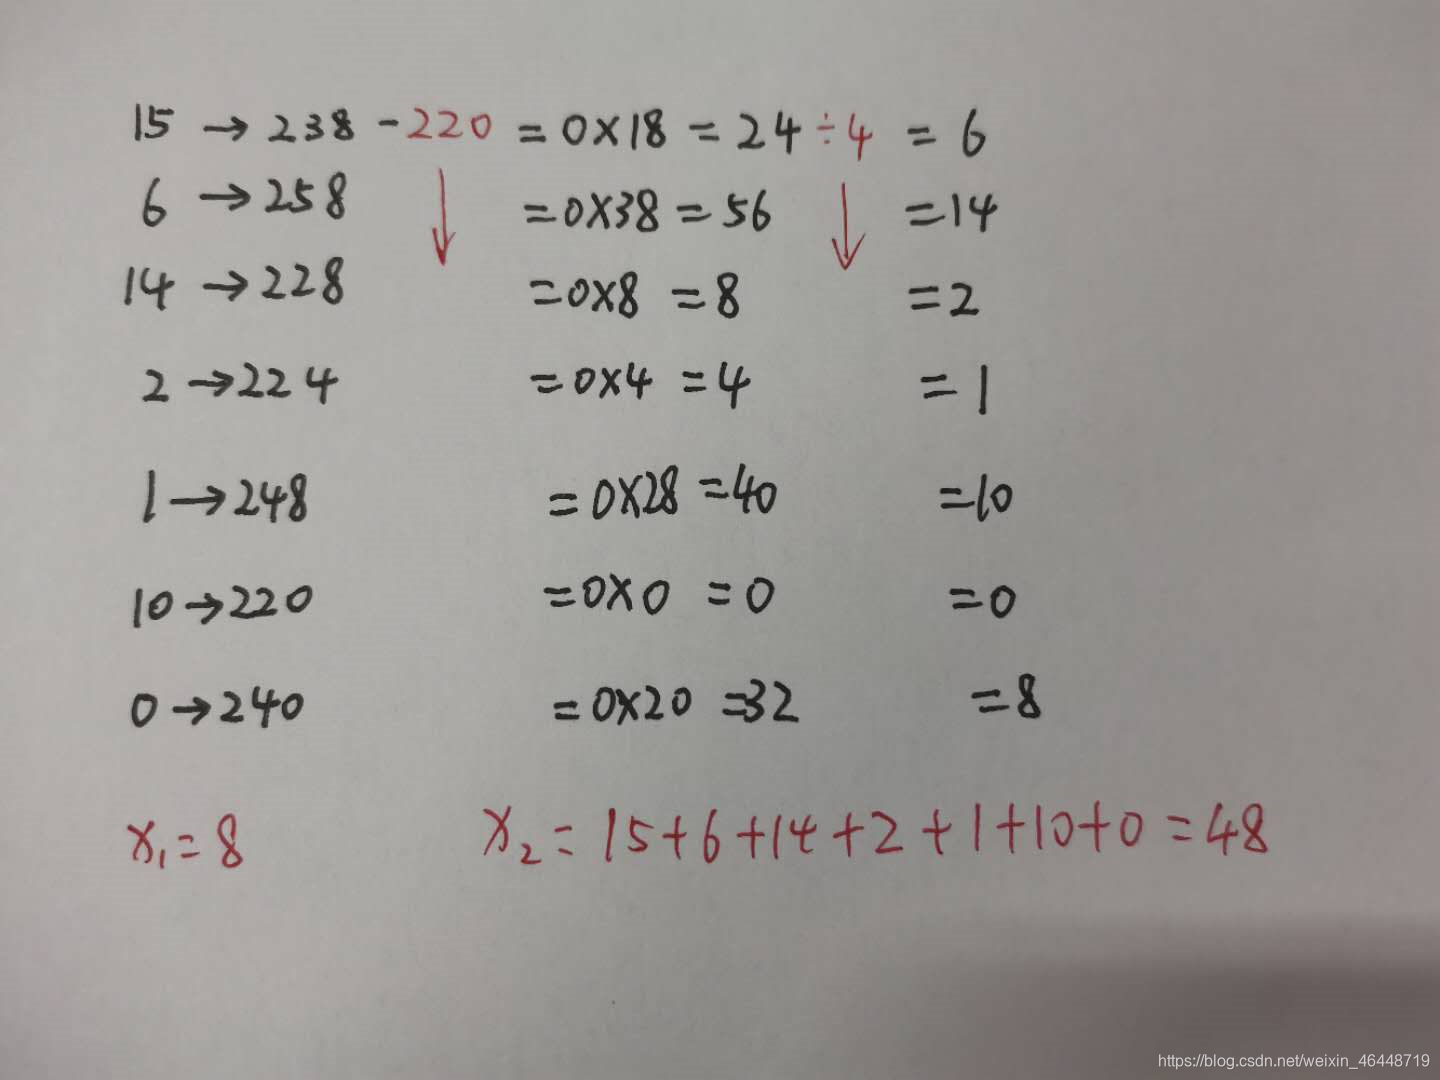 15 → 238 - 220 = 0X18 = 24 ÷ 4 = 6
6 → 258 ↓ = 0X38 = 56 ↓ = 14
14 → 228 = 0X8 = 8 = 2
2 → 224 = 0X4 = 4 = 1
1 → 248 = 0X28 = 40 = 10
10 → 220 = 0X0 = 0 = 0
0 → 240 = 0X20 = 32 = 8
x₁ = 8 x₂ = 15+6+14+2+1+10+0 = 48
https://blog.csdn.net/weixin_46448719